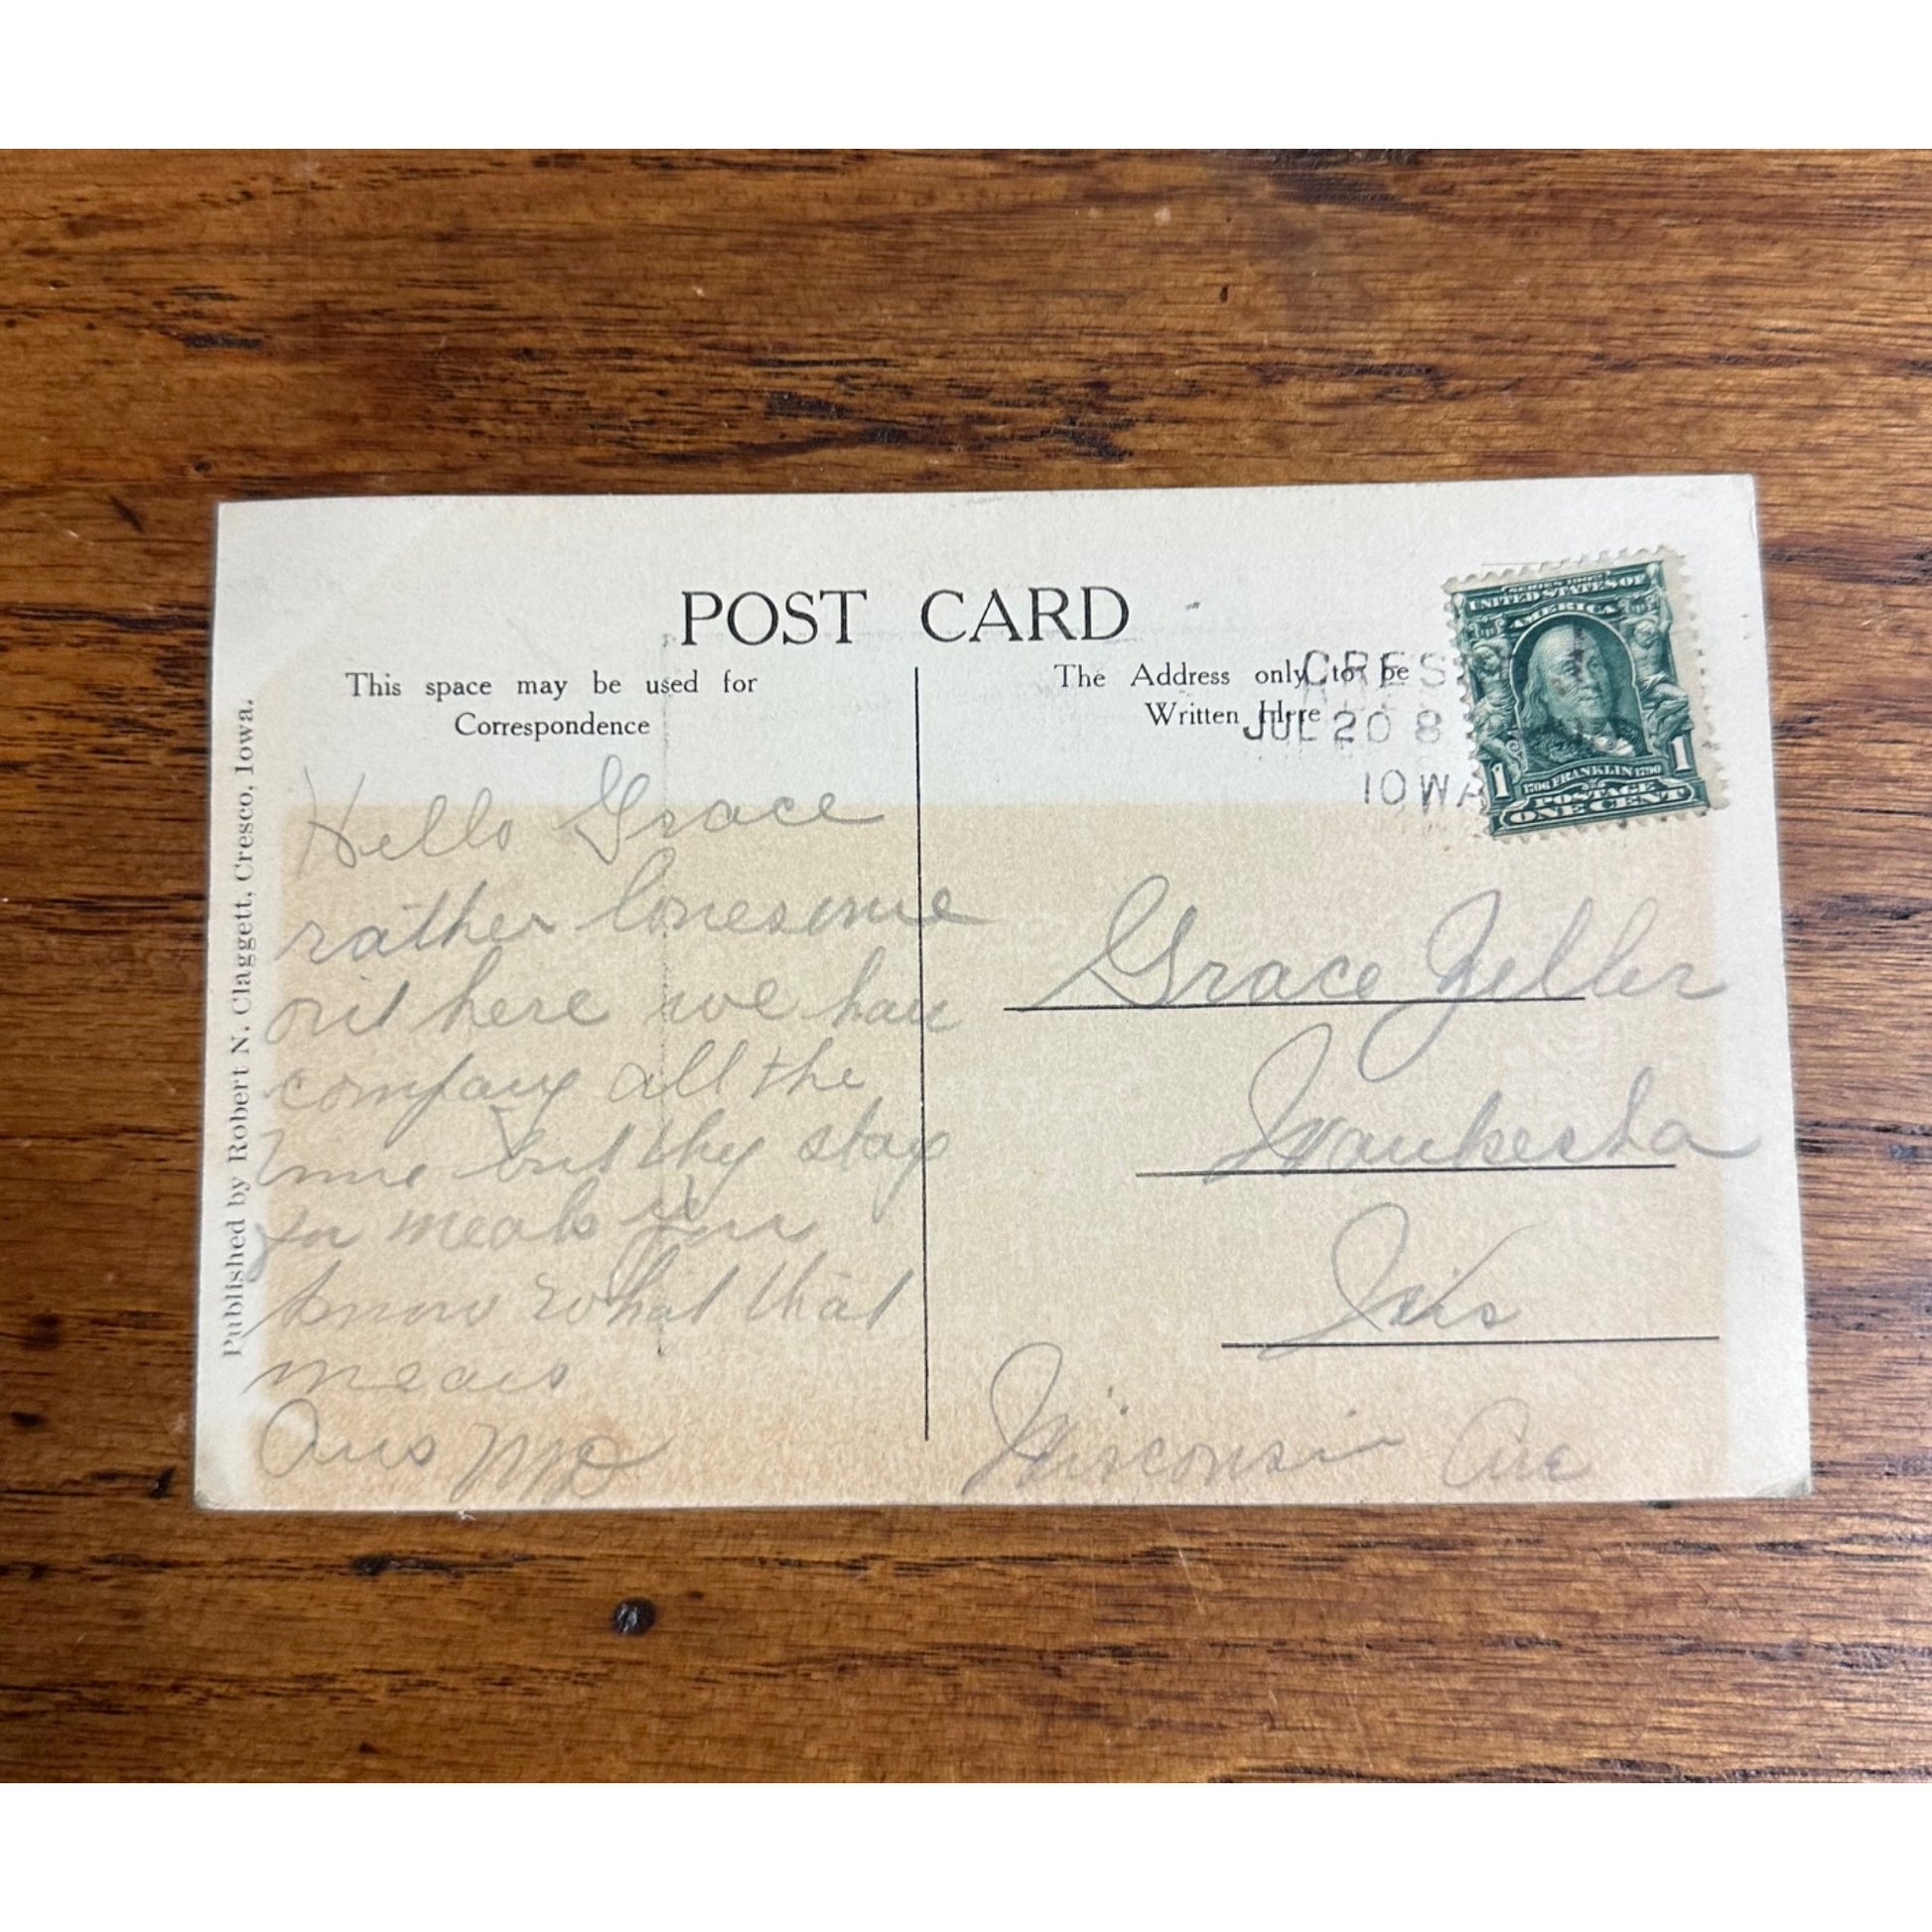 POST CARD
This space may be used for
Correspondence
The Address only to be
Written Here
CRES
JUL 20 8
IOWA
SERIES 1902
UNITED STATES OF
AMERICA
1 1
1706 FRANKLIN 1790
POSTAGE
ONE CENT
Published by Robert N. Claggett, Cresco, Iowa.
Hello Grace
rather lonesome
out here we have
company all the
time but they stay
for meals &
know what that
means
Ans
Grace Zeller
Waukesha
Wis
Wisconsin Ave